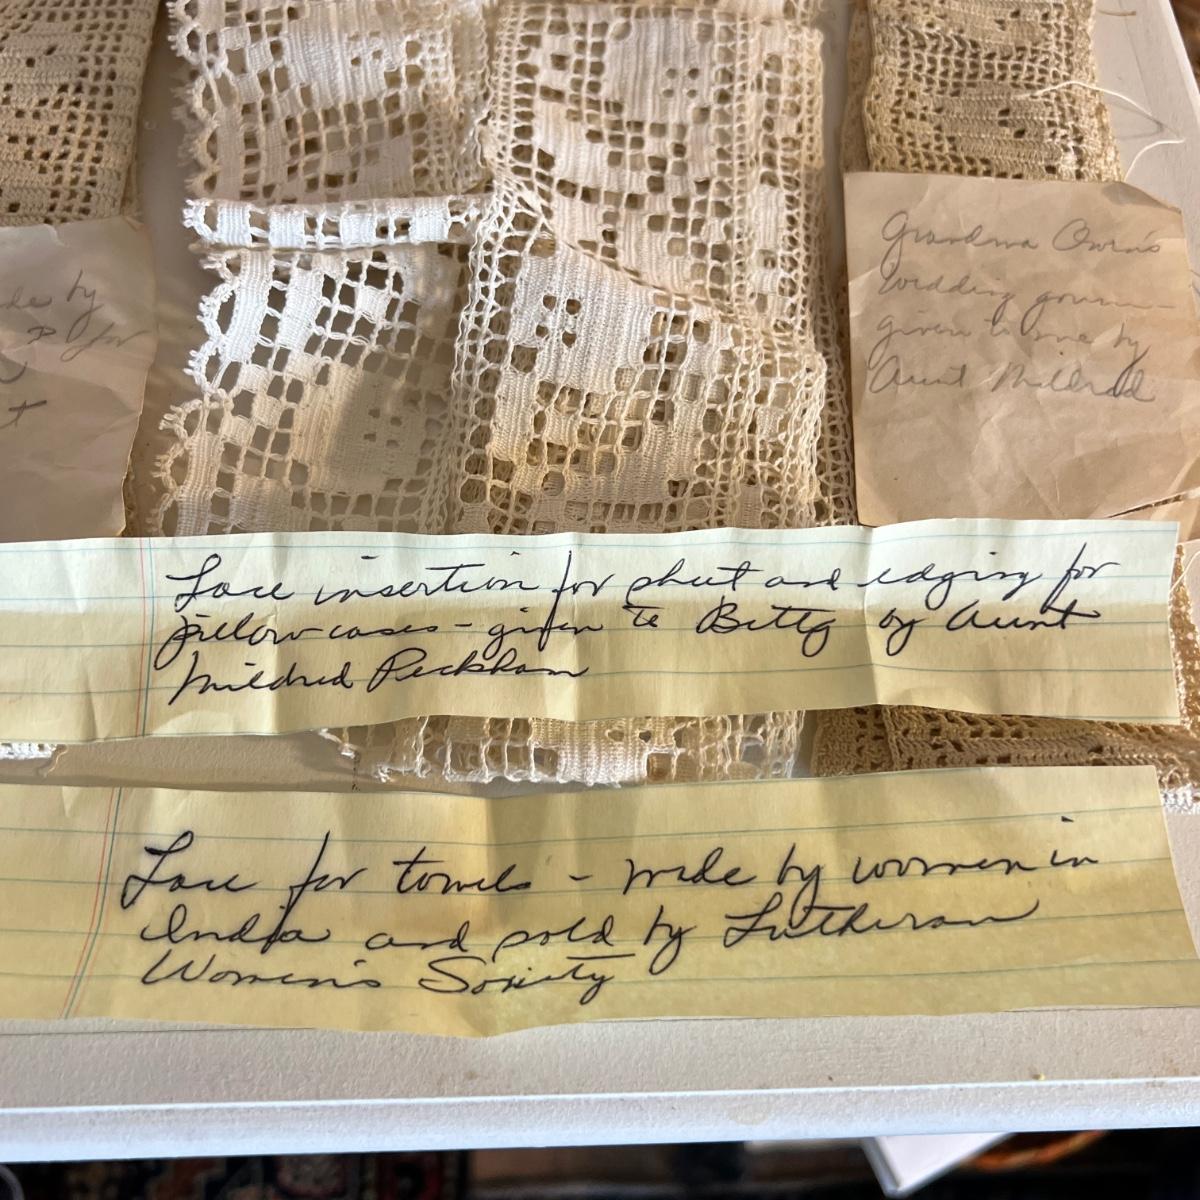 de by
for
Grandma Owen's
wedding gown —
given to me by
Aunt Mildred
Lace insertion for sheet and edging for
pillow cases - given to Betty by Aunt
Mildred Peckham
Lace for towels - made by women in
India and sold by Lutheran
Women's Society